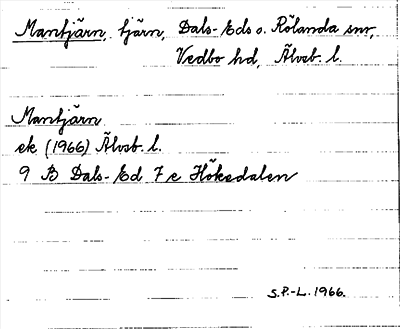 Mantjärn, tjärn, Dals-Eds o. Rölanda snr,
Vedbo hd, Älvsb. l.
Mantjärn
ek (1966) Älvsb. l.
9 B Dals-Ed 7 e Höksdalen
S.P.-L. 1966.